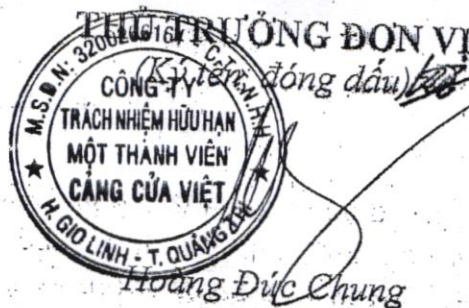 THỦ TRƯỞNG ĐƠN VỊ
(Ký tên, đóng dấu)
M.S.D.N: C.T.T.N.H.H
CÔNG TY
TRÁCH NHIỆM HỮU HẠN
MỘT THÀNH VIÊN
CẢNG CỬA VIỆT
H. GIO LINH - T. QUẢNG TRỊ
Hoàng Đức Chung